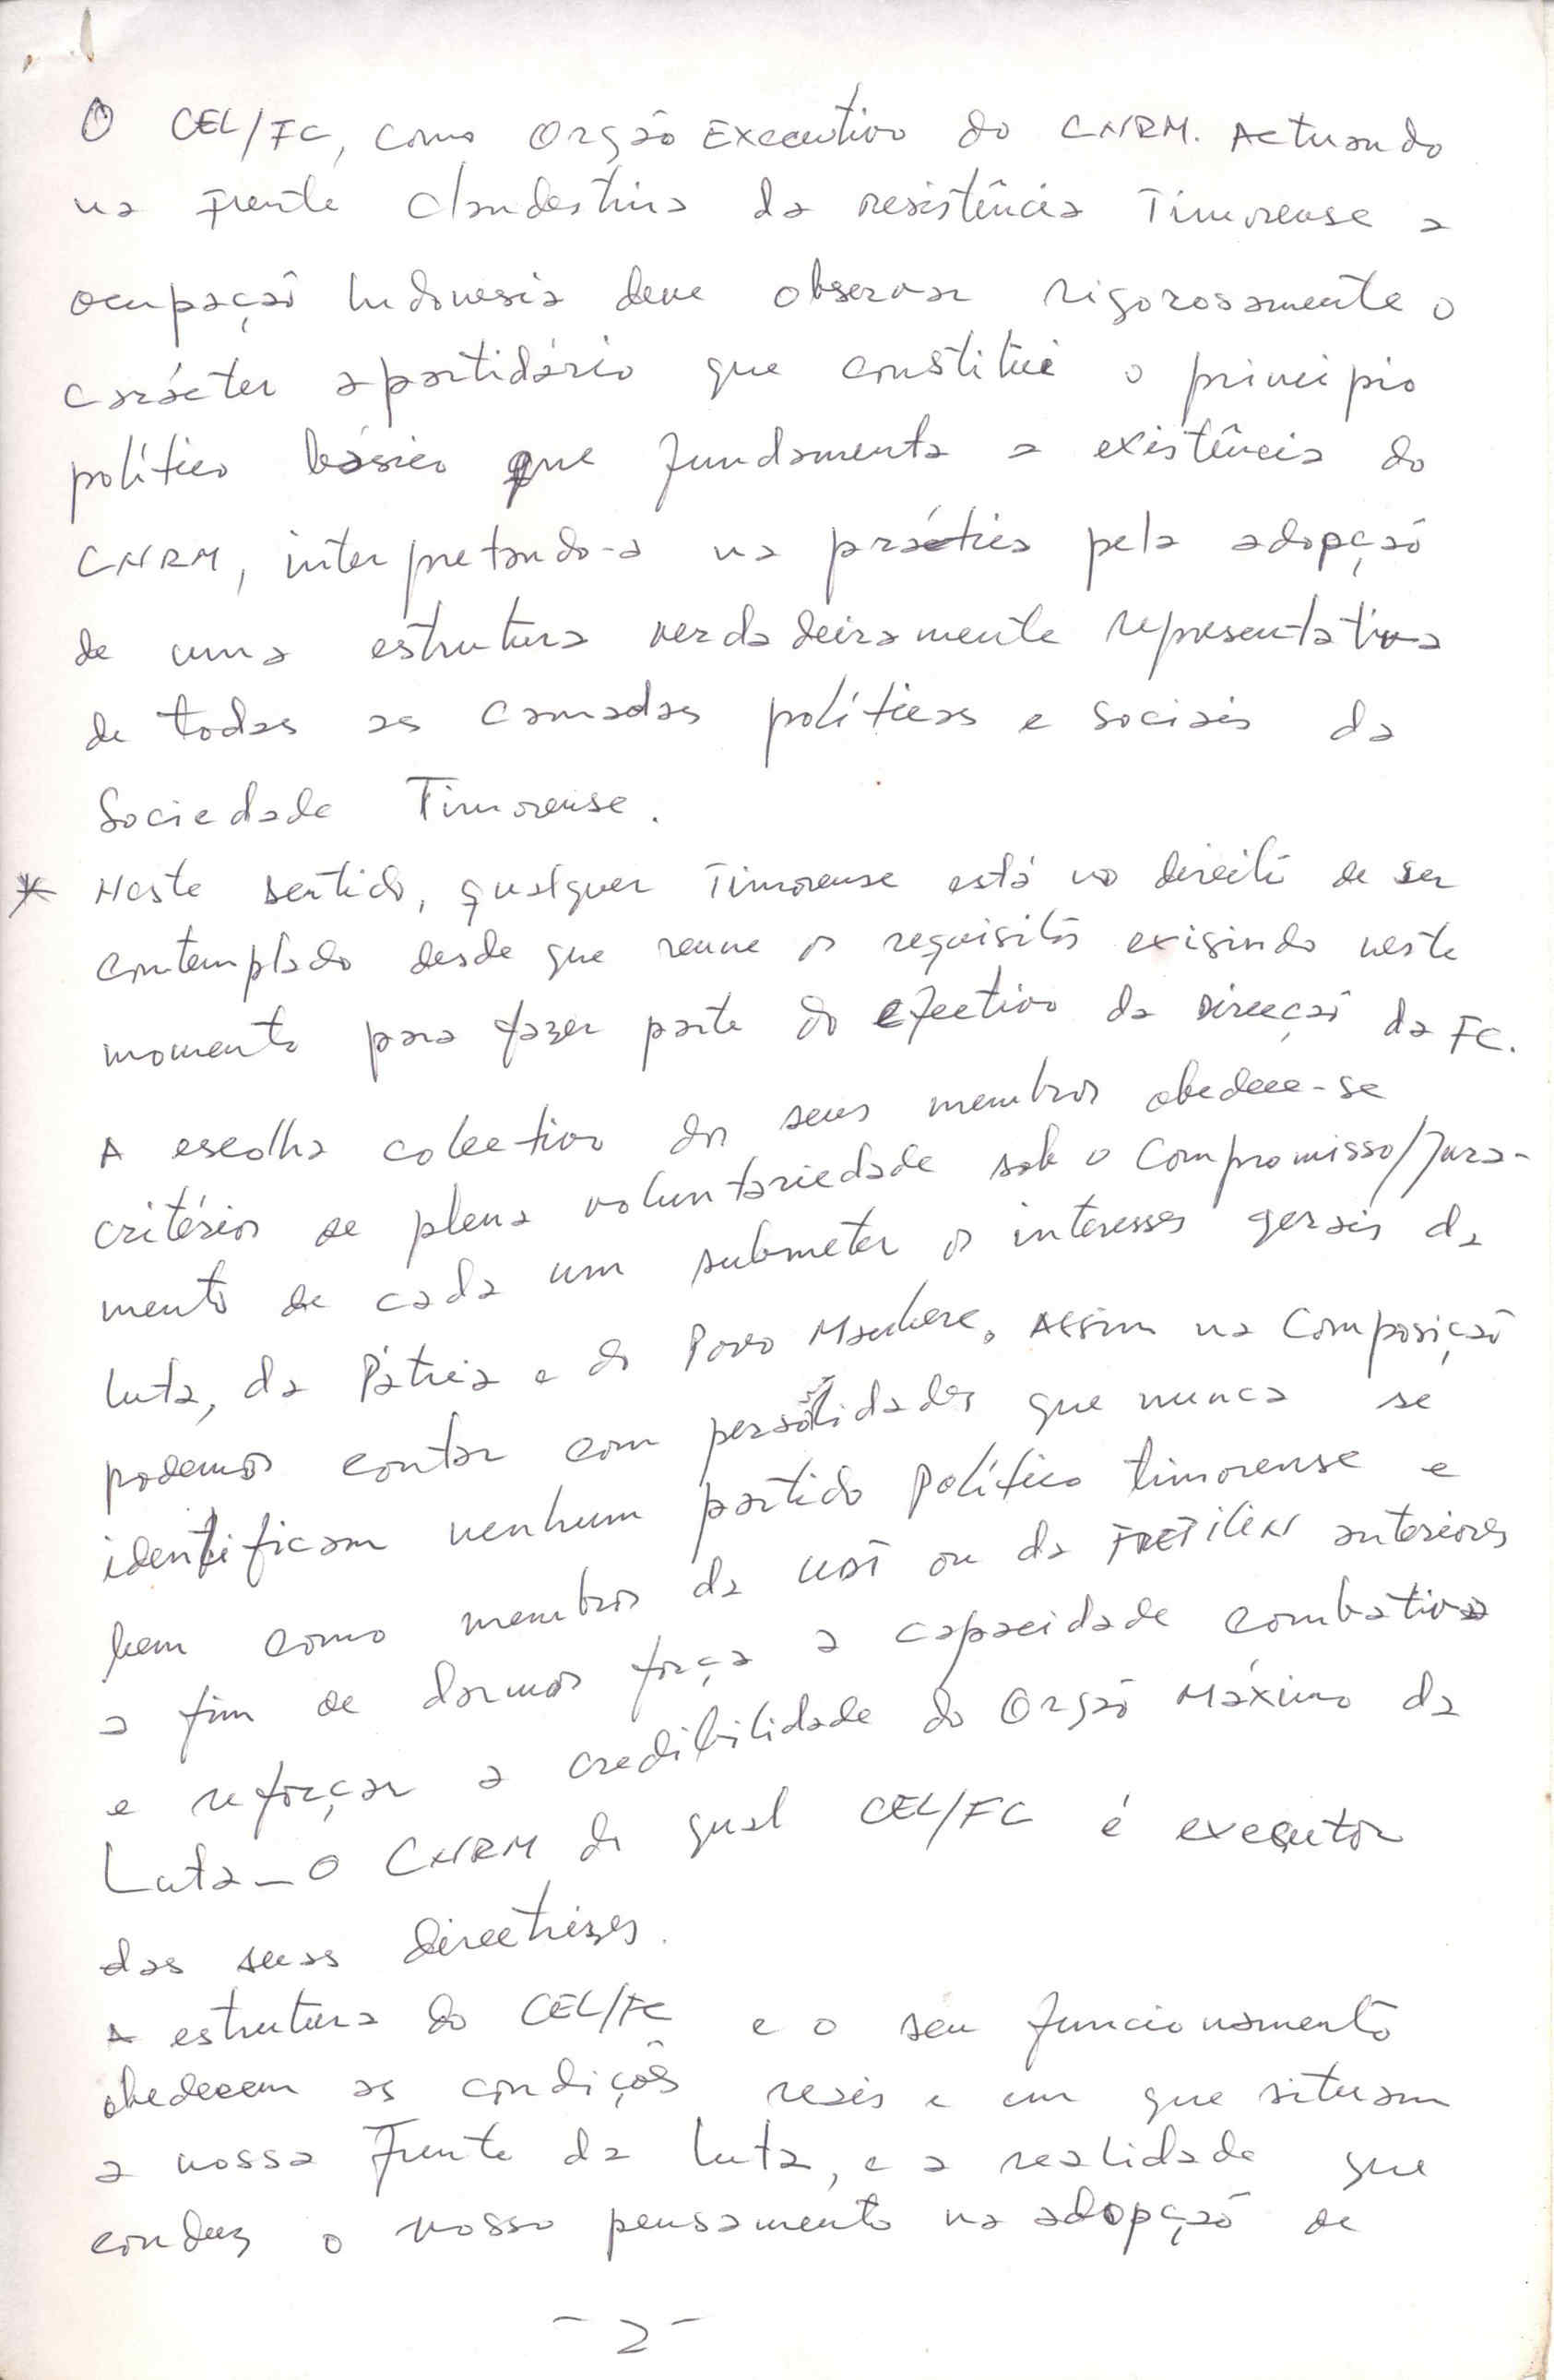 O CEL/FC, como Orgão Executivo do CNRM. Actuando
na Frente Clandestina da resistência Timorense a
ocupação Indonesia deve observar rigorosamente o
carácter apartidário que constitui o principio
político básico que fundamenta a existência do
CNRM, interpretando-a na práctica pela adopção
de uma estrutura verdadeiramente representativa
de todas as camadas políticas e sociais da
Sociedade Timorense.
* Neste sentido, qualquer Timorense está no direito de ser
contemplado desde que reune os requisitos exigindo neste
momento para fazer parte do efectivo da Direcção da FC.
A escolha colectivo dos seus membros obedece-se
critérios de plena voluntariedade sob o Compromisso/Jura-
mento de cada um submeter os interesses gerais da
luta, da Pátria e do Povo Maubere. Assim na Composição
podemos contar com persolidades que nunca se
identificam nenhum partido Político timorense e
bem como membros da UDT ou da FRETILIN anteriores
a fim de darmos força a capacidade combativa
e reforçar a credibilidade do Orgão Máximo da
Luta – O CNRM do qual CEL/FC é executor
das suas directrizes.
A estrutura do CEL/FC e o seu funcionamento
obedecem as condições reais e em que situam
a nossa Frente da luta, e a realidade que
conduz o nosso pensamento na adopção de
- 2 -